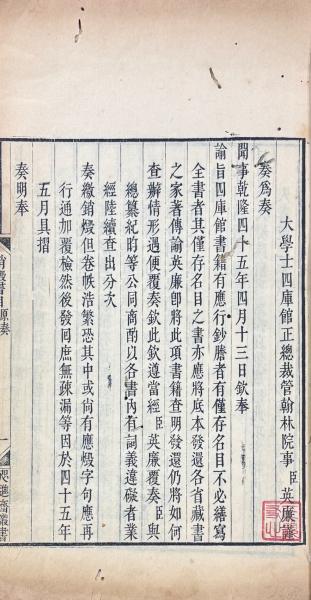 大學士四庫館正總裁管翰林院事臣英廉謹
奏爲奏
聞事乾隆四十五年四月十三日欽奉
諭旨四庫館書籍有應行鈔謄者有僅存名目不必繕寫
全書者其僅存名目之書亦應將底本發還各省藏書
之家著傳諭英廉卽將此項書籍查明發還仍將如何
查辦情形遇便覆奏欽此欽遵當經臣英廉覆奏臣與
總纂紀昀等公同商酌以各書內有詞義違礙者業
經陸續查出分次
奏繳銷燬但卷帙浩繁恐其中或尙有應燬字句應再
行通加覆檢然後發同庶無疎漏等因於四十五年
五月具摺
奏明奉
銷燬書目原奏
一
咫進齋叢書